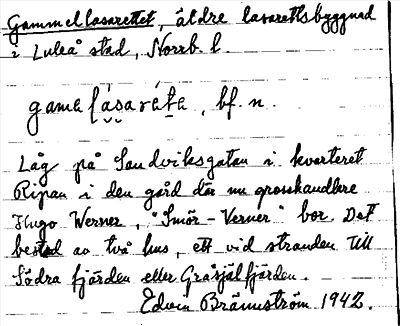 Gammellasarettet, äldre lasarettsbyggnad
i Luleå stad, Norrb. l.
gamelasaräta, bf. n.
Låg på Sandviksgatan i kvarteret
Ripan i den gård där nu grosshandlare
Hugo Werner, "Smör-Verner" bor. Det
bestod av två hus, ett vid stranden till
Södra fjärden eller Gråsjälfjärden.
Edvin Brännström 1942.